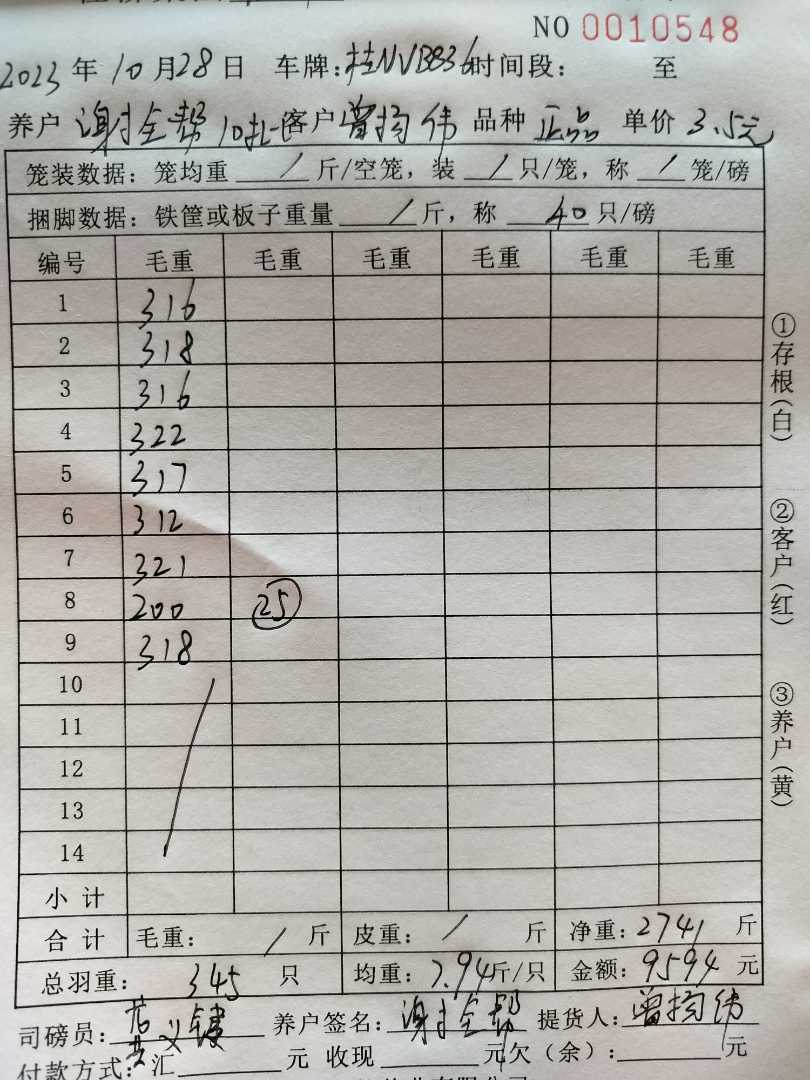 NO 0010548
2023 年 10 月 28 日 车牌: 桂NVB836 时间段: 至
养户 谢全帮 10批 客户 曾扬伟 品种 正品 单价 3.5元
笼装数据: 笼均重 / 斤/空笼, 装 / 只/笼, 称 / 笼/磅
捆脚数据: 铁筐或板子重量 / 斤, 称 40 只/磅
编号 毛重 毛重 毛重 毛重 毛重 毛重
1 316
2 318
3 316
4 322
5 317
6 312
7 321
8 200 25
9 318
10
11
12
13
14
小 计
合 计 毛重: / 斤 皮重: / 斤 净重: 2741 斤
总羽重: 345 只 均重: 7.94 斤/只 金额: 9594 元
司磅员: 养户签名: 谢全帮 提货人: 曾扬伟
付款方式: 汇 元 收现 元 欠(余): 元
①存根(白)
②客户(红)
③养户(黄)